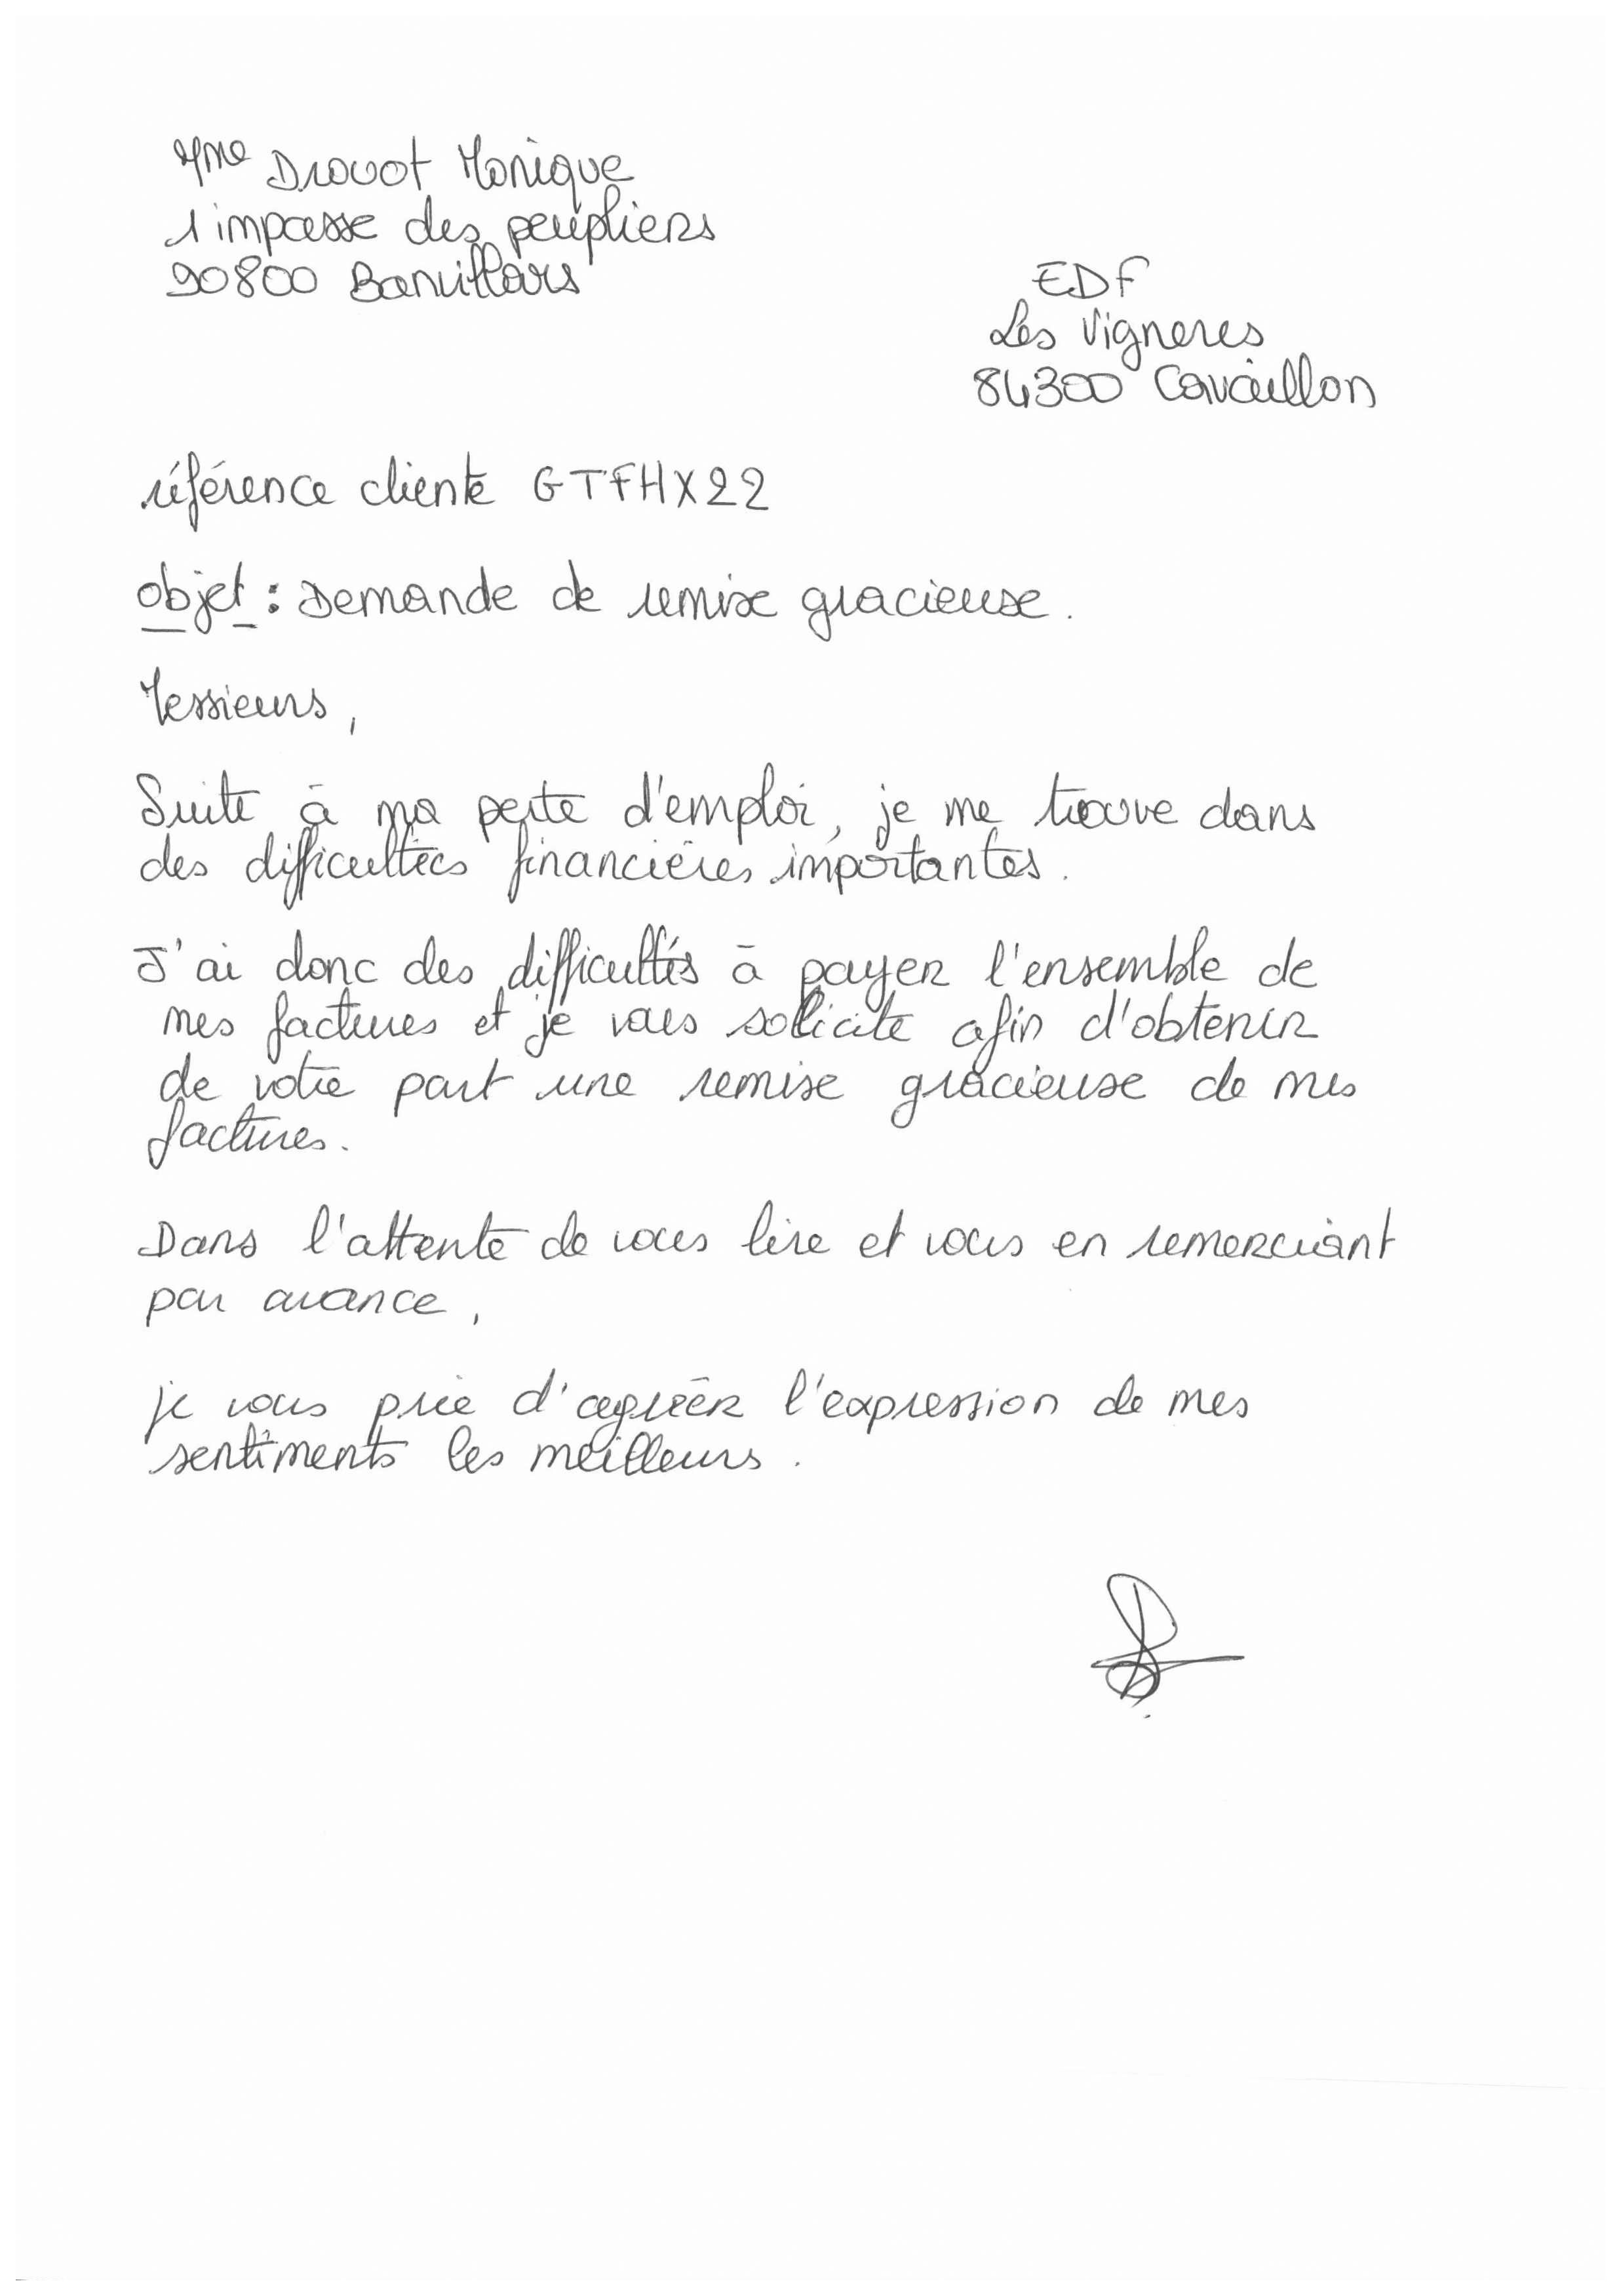 Mme Drouot Monique
1 impasse des peupliers
90800 Banvillars
EDF
Les Vigneres
84300 Cavaillon
référence cliente GTFHX22
objet : Demande de remise gracieuse.
Messieurs,
Suite à ma perte d'emploi, je me trouve dans
des difficultées financières importantes.
J'ai donc des difficultés à payer l'ensemble de
mes factures et je vous sollicite afin d'obtenir
de votre part une remise gracieuse de mes
factures.
Dans l'attente de vous lire et vous en remerciant
par avance,
je vous prie d'agréer l'expression de mes
sentiments les meilleurs.